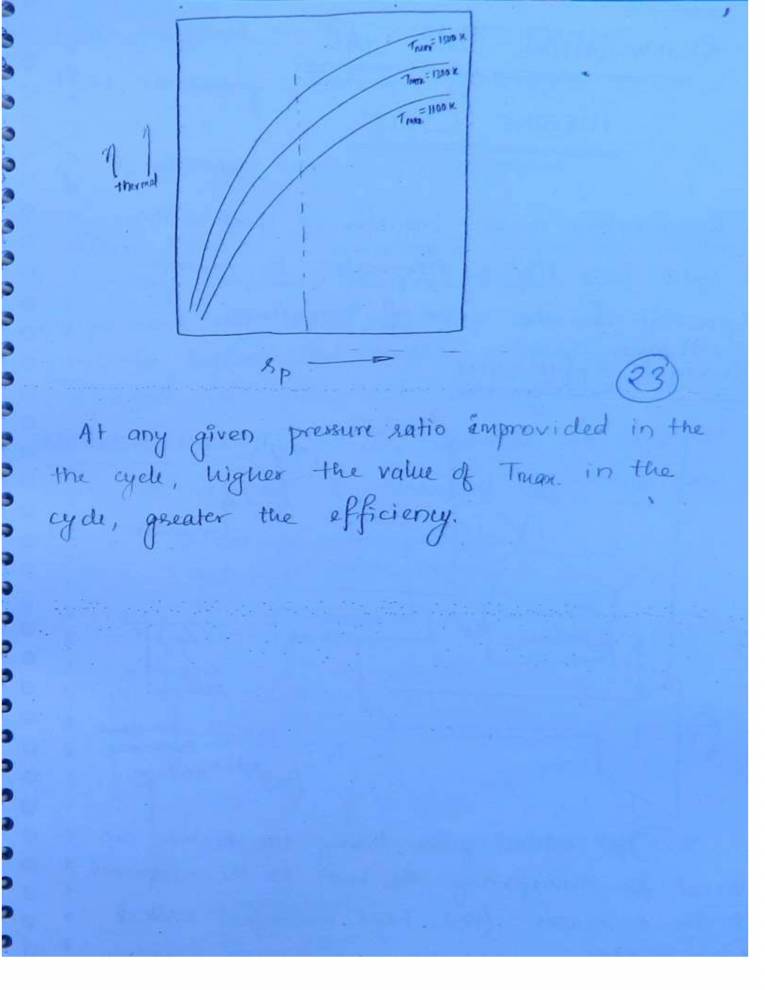 Tmax = 1500 K
Tmax = 1300 K
Tmax. = 1100 K
η thermal
rp
23
At any given pressure ratio improvided in the
the cycle, higher the value of Tmax. in the
cycle, greater the efficiency.